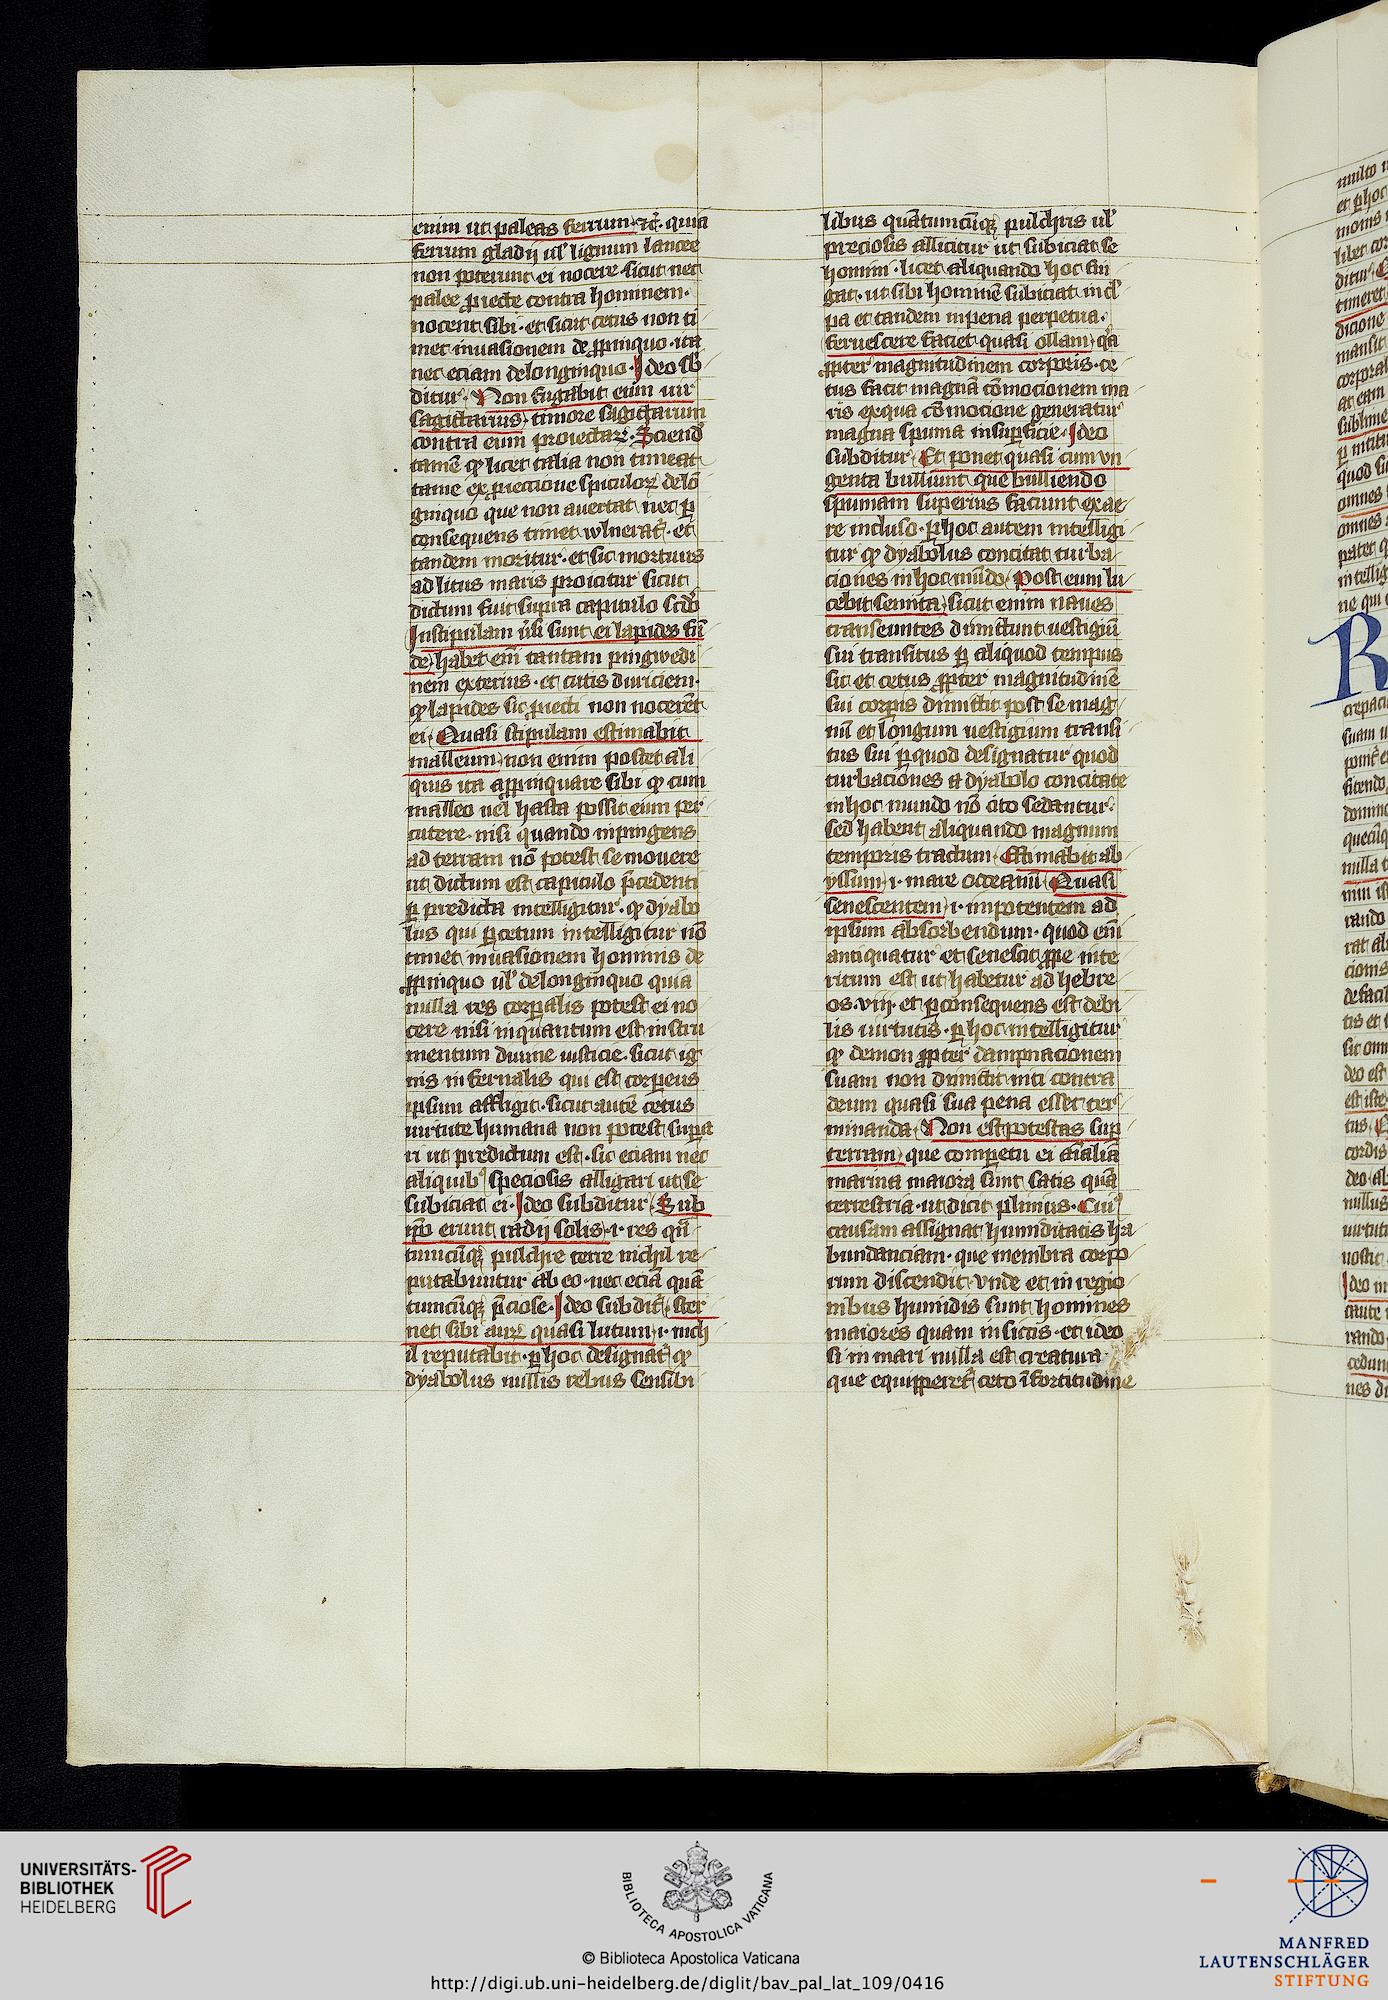 enim ut paleas ferrum · ⁊c̃. quia
ferrum gladij ul' lignum lancee
non poterunt ei nocere sicut nec
palee ꝓiecte contra hominem ·
nocent sibi · et sicut cetus non ti
met inuasionem de ꝓpinquo · ita
nec eciam delonginquo · Ideo sb̾
ditur · Non fugabit eum uir
sagittarius · timore sagittarum
contra eum proiectaꝝ · Sciend̾
tamē ꝙ licet talia non timeat
tame ex ꝓieccione spiculoꝝ delō
ginquo que non auertat nec ꝑ
consequens timet wlnerat̃ · et
tandem moritur · et sic mortuus
ad litus maris proicitur sicut
dictum fuit supra capitulo scd̾o
In stipulam ũsi sunt ei lapides fū
de · habet em̄ tantam pingwedi
nem exterius · et cutis duriciem ·
ꝙ lapides sic ꝓiecti non nocerēt
ei · Quasi stipulam estimabit
malleum · non enim postet ali
quis ita aꝓpinquare sibi ꝙ cum
malleo uel hasta possit eum per
cutere · nisi quando inpingens
ad terram nō potest se mouere
ut dictum est capitulo p̄cedenti
ꝑ predicta intelligitur · ꝙ dyabo
lus qui ꝑ cetum intelligitur nō
timet inuasionem hominis de
ꝓpinquo ul' delonginquo quia
nulla res corꝑalis potest ei no
cere nisi inquantum est instru
mentum diuine iusticie · sicut ig
nis infernalis qui est corꝑeus
ipsum affligit · sicut autē cetus
uirtute humana non potest supa
ri ut predictum est · sic eciam nec
aliquib᾽ speciosis alligari ut se
subiciat ei · Ideo subditur · Sub
ip̄o erunt radij solis · i · res qn̄
tumcūqꝫ pulchre terre nichil re
putabuntur ab eo · nec eciā quā
tumcūqꝫ p̄ciose · Ideo subdit̃ · ster
net sibi auꝝ quasi lutum · i · nich
il reputabit · ꝑ hoc designat̃ ꝙ
dyabolus nullis rebus sensibi
libus quātumcūqꝫ pulchris ul'
preciosis allicitur ut subiciat se
homini · licet aliquando hoc fin
gat · ut sibi hominē subiciat in cl'
pa et tandem inpena perpetua ·
feruescere faciet quasi ollam · qͣa
ꝓpter magnitudinem corporis · ce
tus facit magnā cōmocionem ma
ris exqua cōmocione generatur
magna spuma insuꝑficie · Ideo
subditur · Et ponet quasi cum vn
genta bulliunt que bulliendo
spumam superius faciunt exae
re incluso · ꝑ hoc autem intelligi
tur ꝙ dyabolus concitat turba
ciones in hoc mūdo · Post eum lu
cebit semita · sicut enim naues
transeuntes dimittunt uestigiū
sui transitus ꝑ aliquod tempus
sic et cetus ꝓpter magnitudinē
sui corꝑis dimittit post se mag
nū et longum uestigium transi
tus sui ꝑ quod designatur quod
turbaciones a dyabolo concitate
in hoc mundo nō cito sedantur ·
sed habent aliquando magnum
temporis tractum · Estimabit ab
yssum · i · mare occeanū · Quasi
senescentem · i · impotentem ad
ipsum absorbendum · quod em̄
antiquatur et senescit ꝓpe inte
ritum est ut habetur ad hebre
os · viij · et ꝑ consequens est debi
lis uirtutis · ꝑ hoc intelligitur
ꝙ demon ꝓpter dampnacionem
suam non dimittit niti contra
deum quasi sua pena esset ter
minanda · Non est potestas sup
terram · que comꝑetur ei aīalia
marina maiora sunt satis quā
terrestria · ut dicit plinius · Cui᾽
causam assignat humiditatis ha
bundanciam · que membra corpo
rum discendit · vnde et in regio
nibus humidis sunt homines
maiores quam insiccis · et ideo
si in mari nulla est creatura
que equiꝑperet̃ ceto ī fortitudine
UNIVERSITÄTS-
BIBLIOTHEK
HEIDELBERG
BIBLIOTECA APOSTOLICA VATICANA
© Biblioteca Apostolica Vaticana
http://digi.ub.uni-heidelberg.de/diglit/bav_pal_lat_109/0416
MANFRED
LAUTENSCHLÄGER
STIFTUNG